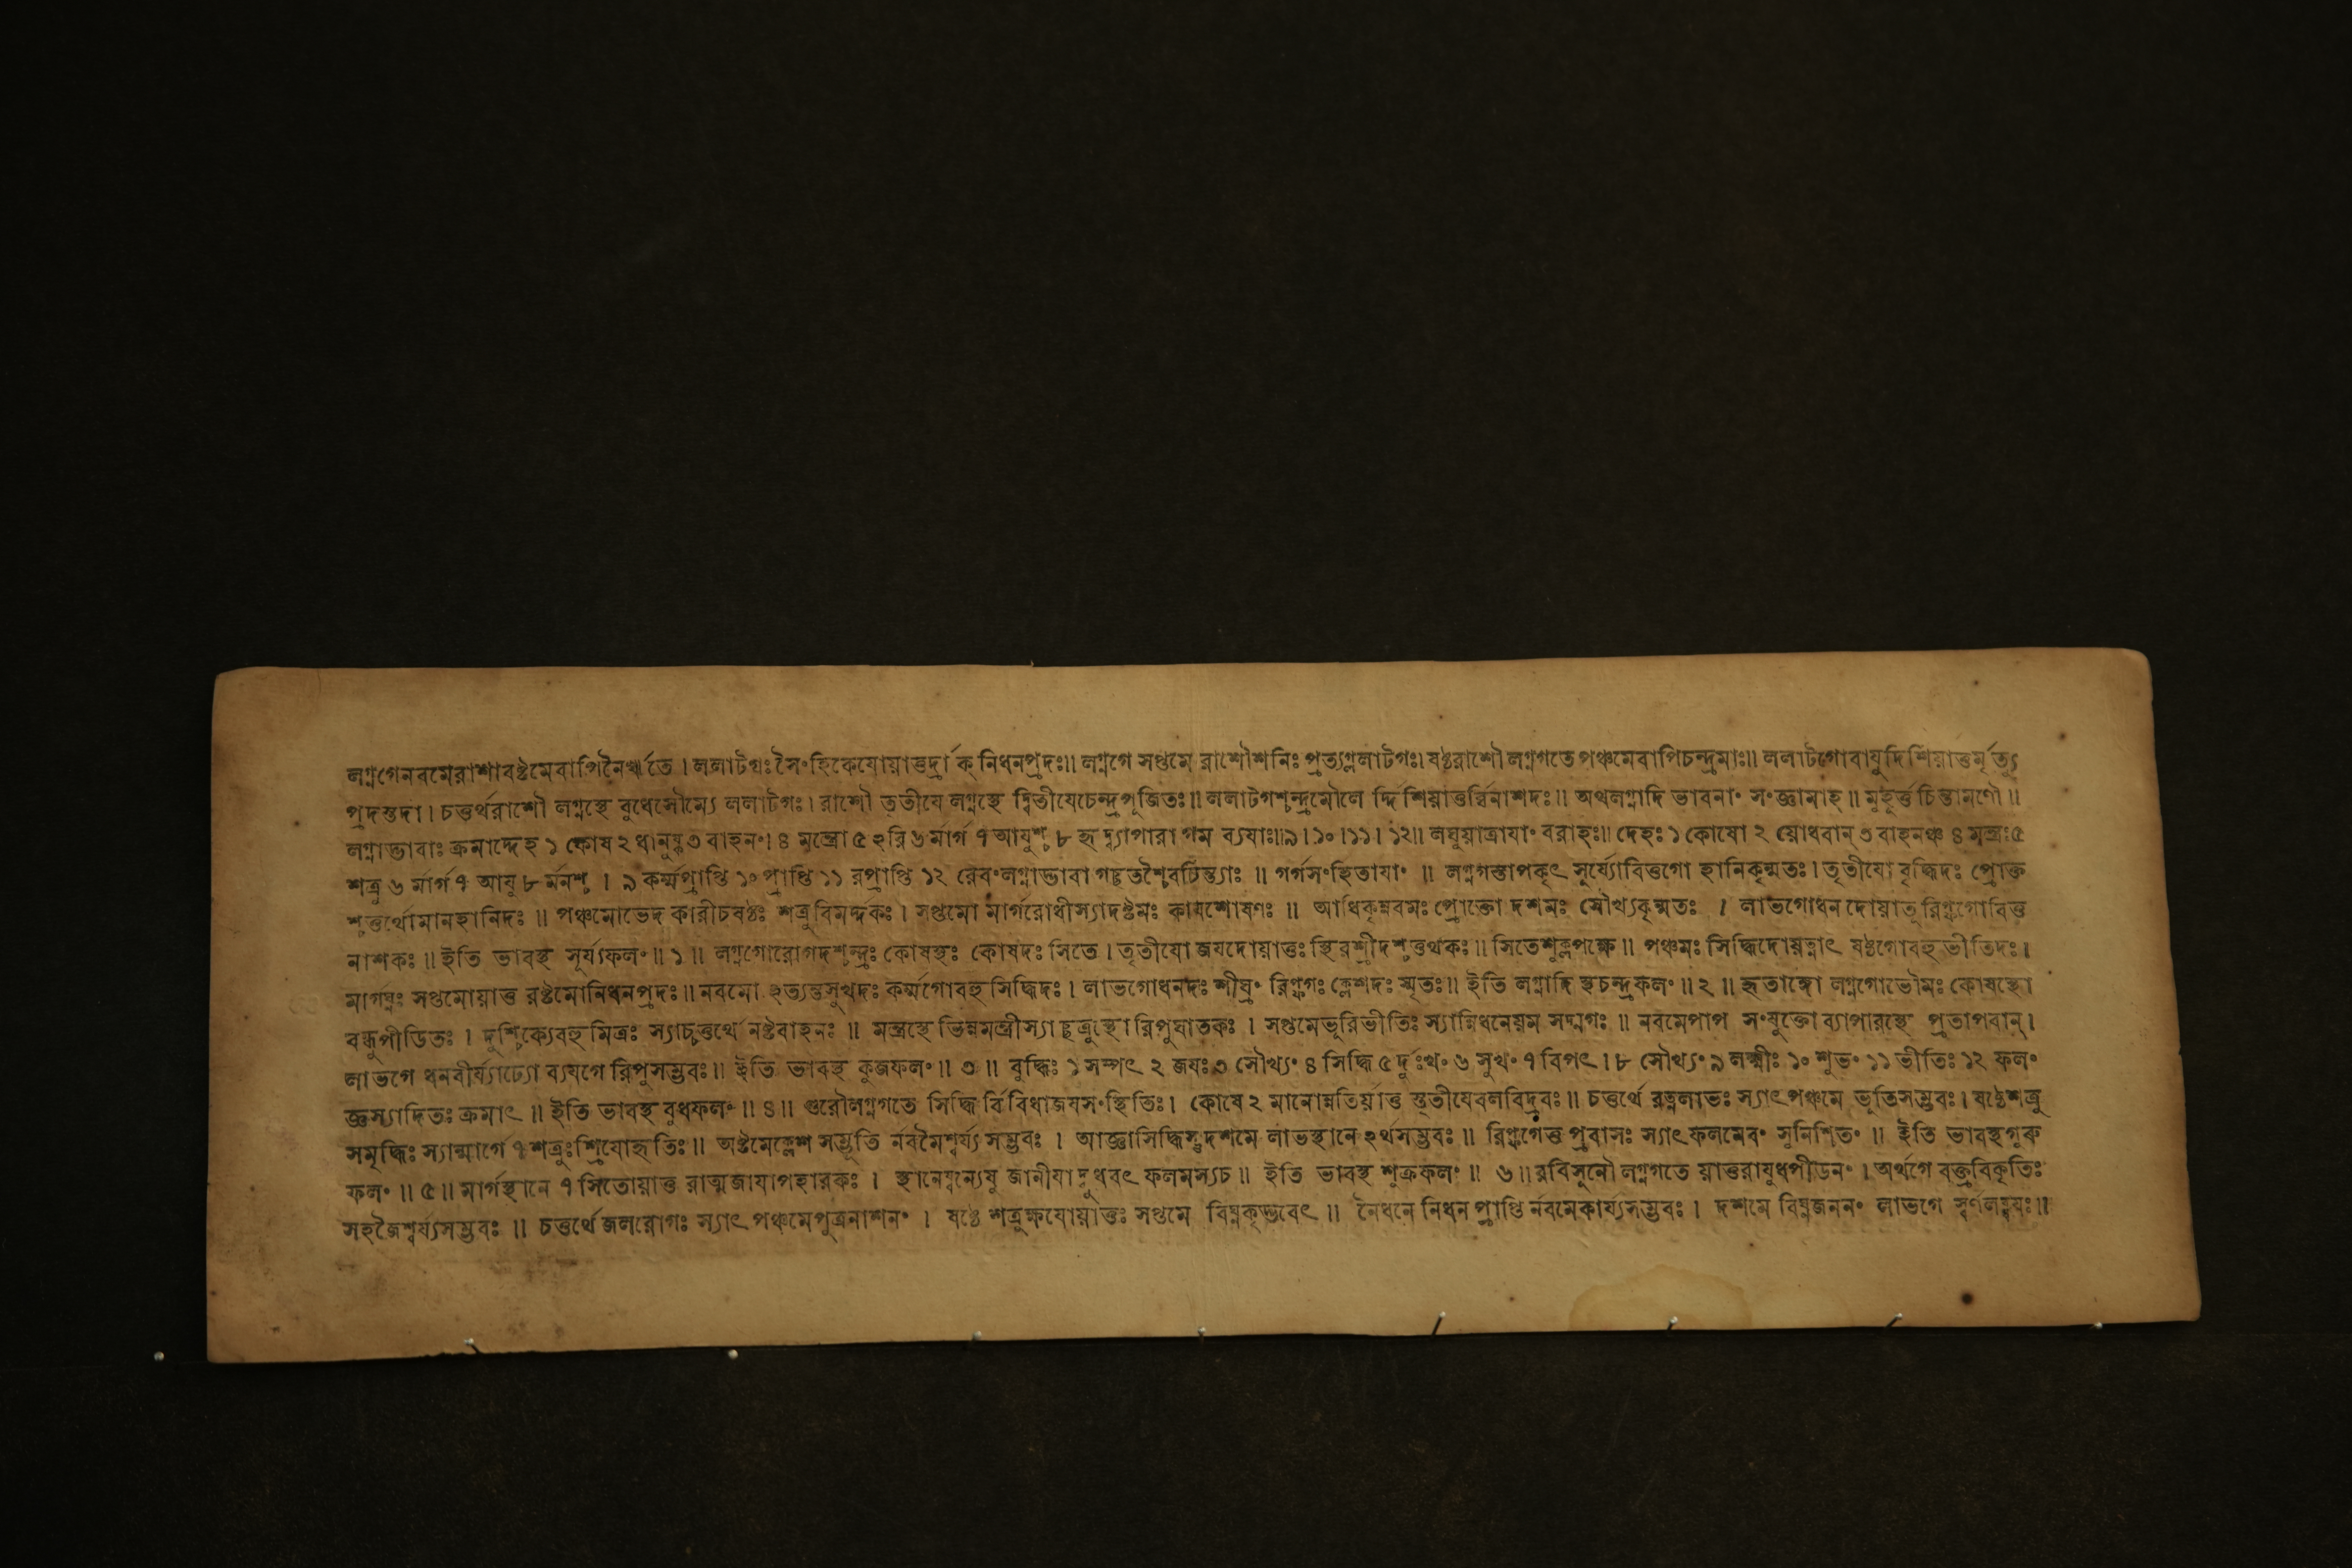 লগ্নগেনবমেরাশাবষ্টমেবাপিনৈরৃতে । ললাটগঃ সৈংহিকেযোয়াত্তদ্রাক্ নিধনপ্রদঃ॥ লগ্নগে সপ্তমে রাশৌশনিঃ প্রত্যগ্ললাটগঃ। ষষ্ঠরাশৌ লগ্নগতে পঞ্চমেবাপিচন্দ্রমাঃ॥ ললাটগোবাযুদিশিয়াত্তর্মৃত্যু
প্রদস্তদা । চত্তর্থরাশৌ লগ্নস্থে বুধেসৌম্যে ললাটগঃ। রাশৌ তৃতীযে লগ্নস্থে দ্বিতীযেচেন্দ্রপূজিতঃ॥ ললাটগশ্চন্দ্রমৌলে র্দ্দিশিয়াত্তর্ব্বিনাশদঃ॥ অথলগ্নাদি ভাবনাং সংজ্ঞামাহ ॥ মুহূর্ত্ত চিন্তামণৌ ॥
লগ্নাদ্ভাবাঃ ক্রমাদ্দেহ ১ কোষ ২ ধানুষ্ক ৩ বাহনং। ৪ মন্ত্রো ৫ হরি ৬ র্মার্গ ৭ আযুশ্চ ৮ হৃদ্ব্যাপারা গম ব্যযাঃ॥৯। ১০ ।১১। ১২॥ লঘুয়াত্রাযাং বরাহঃ॥ দেহঃ ১ কোষো ২ য়োধবান্ ৩ বাহনঞ্চ ৪ মন্ত্রঃ ৫
শত্রু ৬ র্মার্গ ৭ আযু ৮ র্মনশ্চ । ৯ কর্ম্মপ্রাপ্তি ১০ প্রাপ্তি ১১ রপ্রাপ্তি ১২ রেবংলগ্নাদ্ভাবা গচ্ছতশ্চৈবচিন্ত্যাঃ ॥ গর্গসংহিতাযাং ॥ লগ্নগস্তাপকৃৎ সূর্য্যোবিত্তগো হানিকৃন্মতঃ। তৃতীযো বৃদ্ধিদঃ প্রোক্ত
শ্চত্তর্থোমানহানিদঃ ॥ পঞ্চমোভেদ কারীচষষ্ঠঃ শত্রুবিমর্দ্দকঃ। সপ্তমো মার্গরোধীস্যাদষ্টমঃ কাযশোষণঃ ॥ আধিকৃন্নবমঃ প্রোক্তো দশমঃ সৌখ্যকৃন্মতঃ । লাভগোধন দোয়াতূ রিপ্ফগোবিত্ত
নাশকঃ ॥ ইতি ভাবস্থ সূর্য্যফলং ॥ ১ ॥ লগ্নগোরোগদশ্চন্দ্রঃ কোষস্থঃ কোষদঃ সিতে । তৃতীযো জযদোয়াত্তঃ স্থিরশ্রীদশ্চত্তর্থকঃ॥ সিতেশুক্লপক্ষে ॥ পঞ্চমঃ সিদ্ধিদোয়ত্নাৎ ষষ্ঠগোবহুভীতিদঃ।
মার্গঘ্নঃ সপ্তমোয়াত্ত রষ্টমোনিধনপ্রদঃ॥ নবমো হত্যন্তসুখদঃ কর্ম্মগোবহু সিদ্ধিদঃ । লাভগোধনদঃ শীঘ্রং রিপ্ফগঃ ক্লেশদঃ স্মৃতঃ॥ ইতি লগ্নাদি স্থচন্দ্রফলং ॥ ২ ॥ হৃতাঙ্গো লগ্নগোভৌমঃ কোষস্থো
বন্ধুপীডিতঃ । দুশ্চিক্যেবহু মিত্রঃ স্যাচ্চত্তর্থে নষ্টবাহনঃ ॥ মন্ত্রস্থে ভিন্নমন্ত্রীস্যা চ্ছত্রুস্থো রিপুঘাতকঃ । সপ্তমেভূরিভীতিঃ স্যান্নিধনেয়ম সদ্মগঃ ॥ নবমেপাপ সংযুক্তো ব্যাপারস্থে প্রতাপবান্।
লাভগে ধনবীর্য্যাঢ্যো ব্যযগে রিপুসম্ভবঃ॥ ইতি ভাবস্থ কুজফলং ॥ ৩ ॥ বুদ্ধিঃ ১ সম্পৎ ২ জযঃ ৩ সৌখ্যং ৪ সিদ্ধি ৫ র্দুঃখং ৬ সুখং ৭ বিপৎ । ৮ সৌখ্যং ৯ লক্ষ্মীঃ ১০ শুভং ১১ ভীতিঃ ১২ ফলং
জ্ঞস্যাদিতঃ ক্রমাৎ ॥ ইতি ভাবস্থ বুধফলং ॥ ৪ ॥ গুরৌলগ্নগতে সিদ্ধি র্বিবিধাজযসংস্থিতিঃ। কোষে ২ মানোন্নতির্য়াত্ত স্তৃতীযেবলবিদ্রবঃ॥ চত্তর্থে রত্নলাভঃ স্যাৎপঞ্চমে ভূতিসম্ভবঃ। ষষ্ঠেশত্রু
সমৃদ্ধিঃ স্যান্মার্গে ৭ শত্রুঃশ্রিযোহৃতিঃ॥ অষ্টমেক্লেশ সম্ভূতি র্নবমৈশ্বর্য্য সম্ভবঃ । আজ্ঞাসিদ্ধিস্তুদশমে লাভস্থানে হর্থসম্ভবঃ ॥ রিপ্ফগেত্ত প্রবাসঃ স্যাৎ ফলমেবং সুনিশ্চিতং ॥ ইতি ভাবস্থগুরু
ফলং ॥ ৫ ॥ মার্গস্থানে ৭ সিতোয়াত্ত রাত্মজাযাপহারকঃ । স্থানেষ্বন্যেষু জানীযা দ্বুধবৎ ফলমস্যচ ॥ ইতি ভাবস্থ শুক্রফলং ॥ ৬ ॥ রবিসুনৌ লগ্নগতে য়াত্তরাযুধপীডনং । অর্থগে বক্ত্রবিকৃতিঃ
সহজৈশ্বর্য্যসম্ভবঃ ॥ চত্তর্থে জলরোগঃ স্যাৎ পঞ্চমেপুত্রনাশনং । ষষ্ঠে শত্রুক্ষযোয়াত্তঃ সপ্তমে বিঘ্নকৃদ্ভবেৎ ॥ নৈধনে নিধন প্রাপ্তি র্নবমেকার্য্যসম্ভবঃ । দশমে বিঘ্নজননং লাভগে স্বর্ণলব্ধযঃ॥